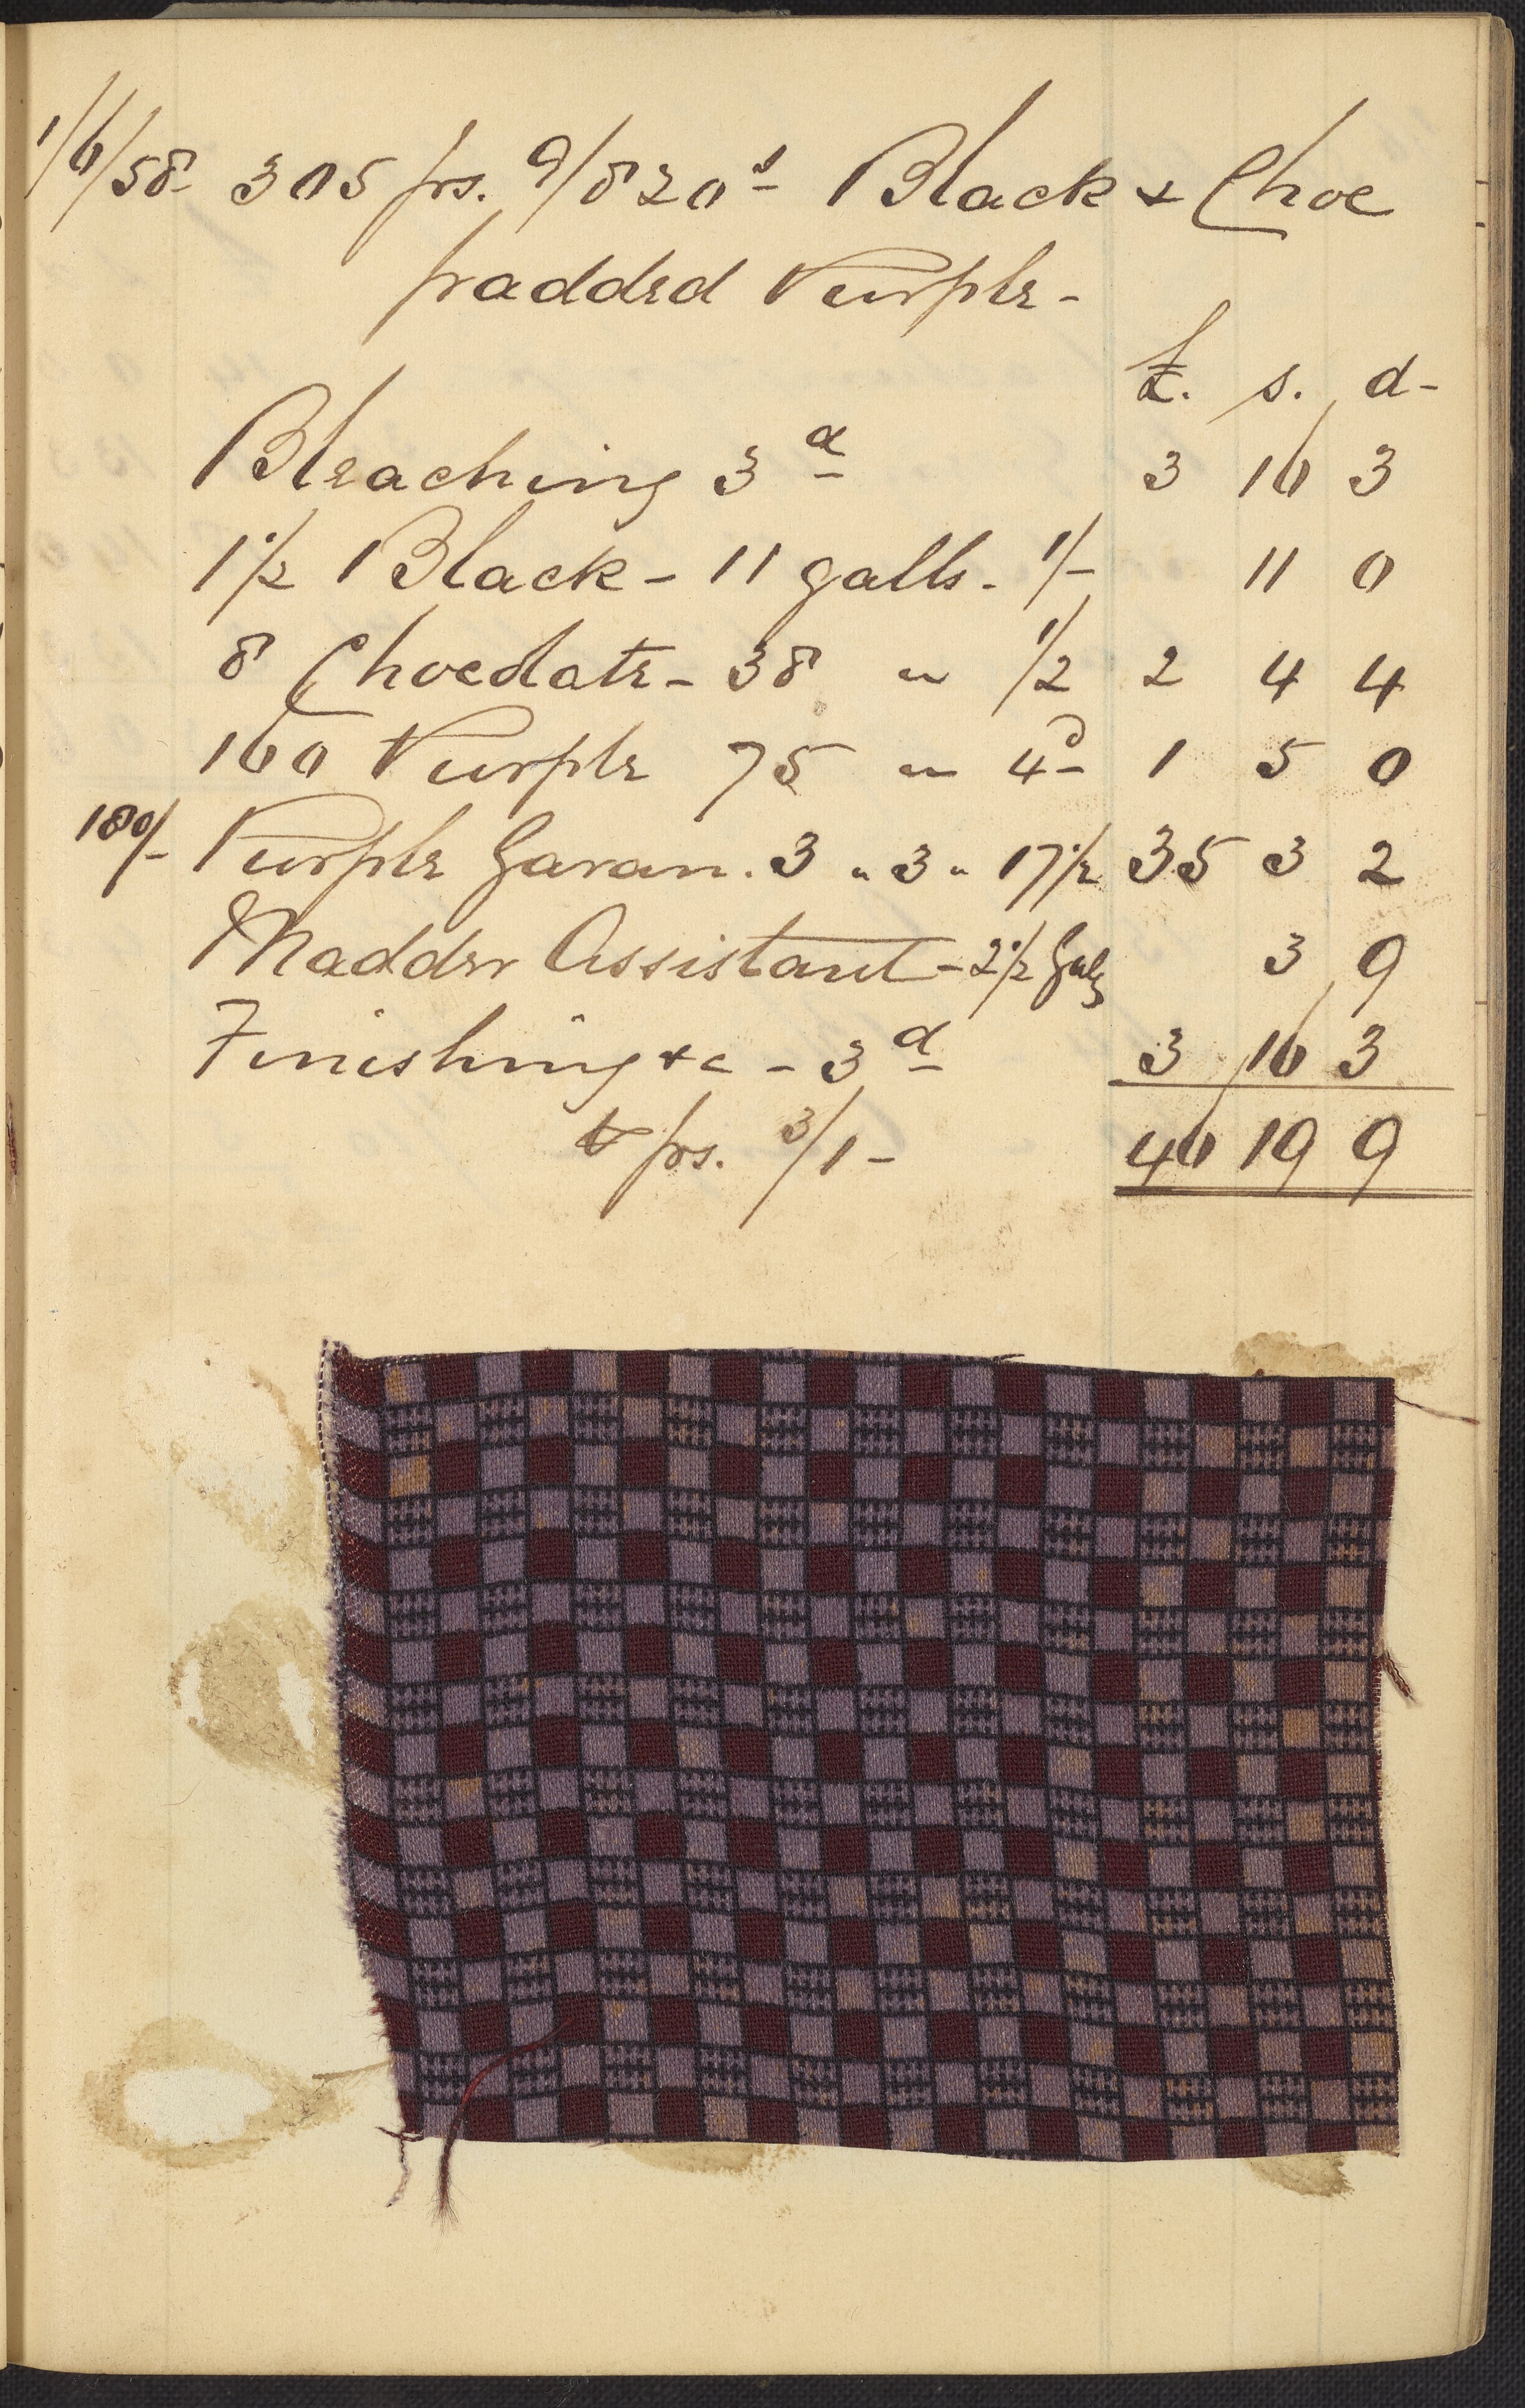 1/6/58 305 ps. 9/8 20s Black & Choc
padded Purple -
£. s. d-
Bleaching 3d 3 16 3
1½ Black - 11 galls. 1/- 11 0
8 Chocolate - 38 " 1/2 2 4 4
160 Purple 75 " 4d 1 5 0
180/- Purple Garan. 3 " 3 " 17½ 35 3 2
Madder Assistant - 2½ Gals 3 9
Finishing &c - 3d 3 16 3
ps. 3/1 - 46 19 9